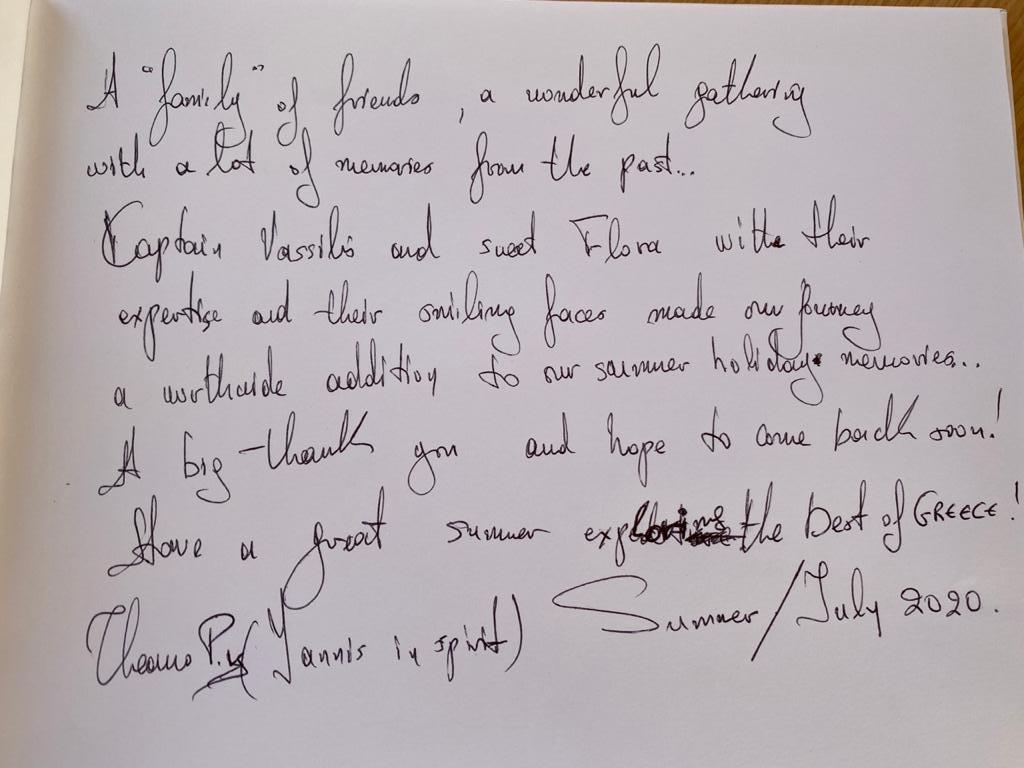 A "family" of friends, a wonderful gathering
with a lot of memories from the past...
Captain Vassilis and sweet Flora with their
expertise and their smiling faces made our journey
a worthwhile addition to our summer holiday memories...
A big thank you and hope to come back soon!
Have a great summer exploring the best of GREECE!
Theano P. (Yannis in spirit) Summer/July 2020.